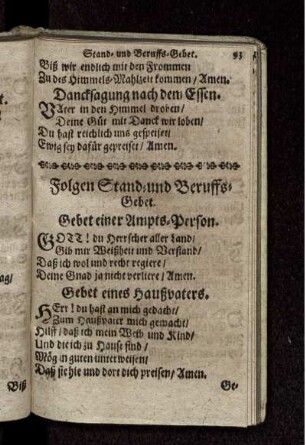 Stand- und Beruffs-Gebet. 93
Biß wir endlich mit den Frommen
Zu des Himmels-Mahlzeit kommen / Amen.
Dancksagung nach den Essen.
VAter in den Himmel droben /
Deine Güt mit Danck wir loben /
Du hast reichlich uns gespeiset /
Ewig sey dafür gepreiset / Amen.
Folgen Stand- und Beruffs-
Gebet.
Gebet einer Ampts-Person.
GOTT! du Herrscher aller Land /
Gib mir Weißheit und Verstand /
Daß ich wol und recht regiere /
Deine Gnad ja nicht verliere / Amen.
Gebet eines Haußvaters.
HErr! du hast an mich gedacht /
Zum Haußvater mich gemacht /
Hilff / daß ich mein Weib und Kind /
Und die ich zu Hause find /
Mög in guten unterweisen /
Daß sie hie und dort dich preisen / Amen.
Ge-
t.
ag /
Biß